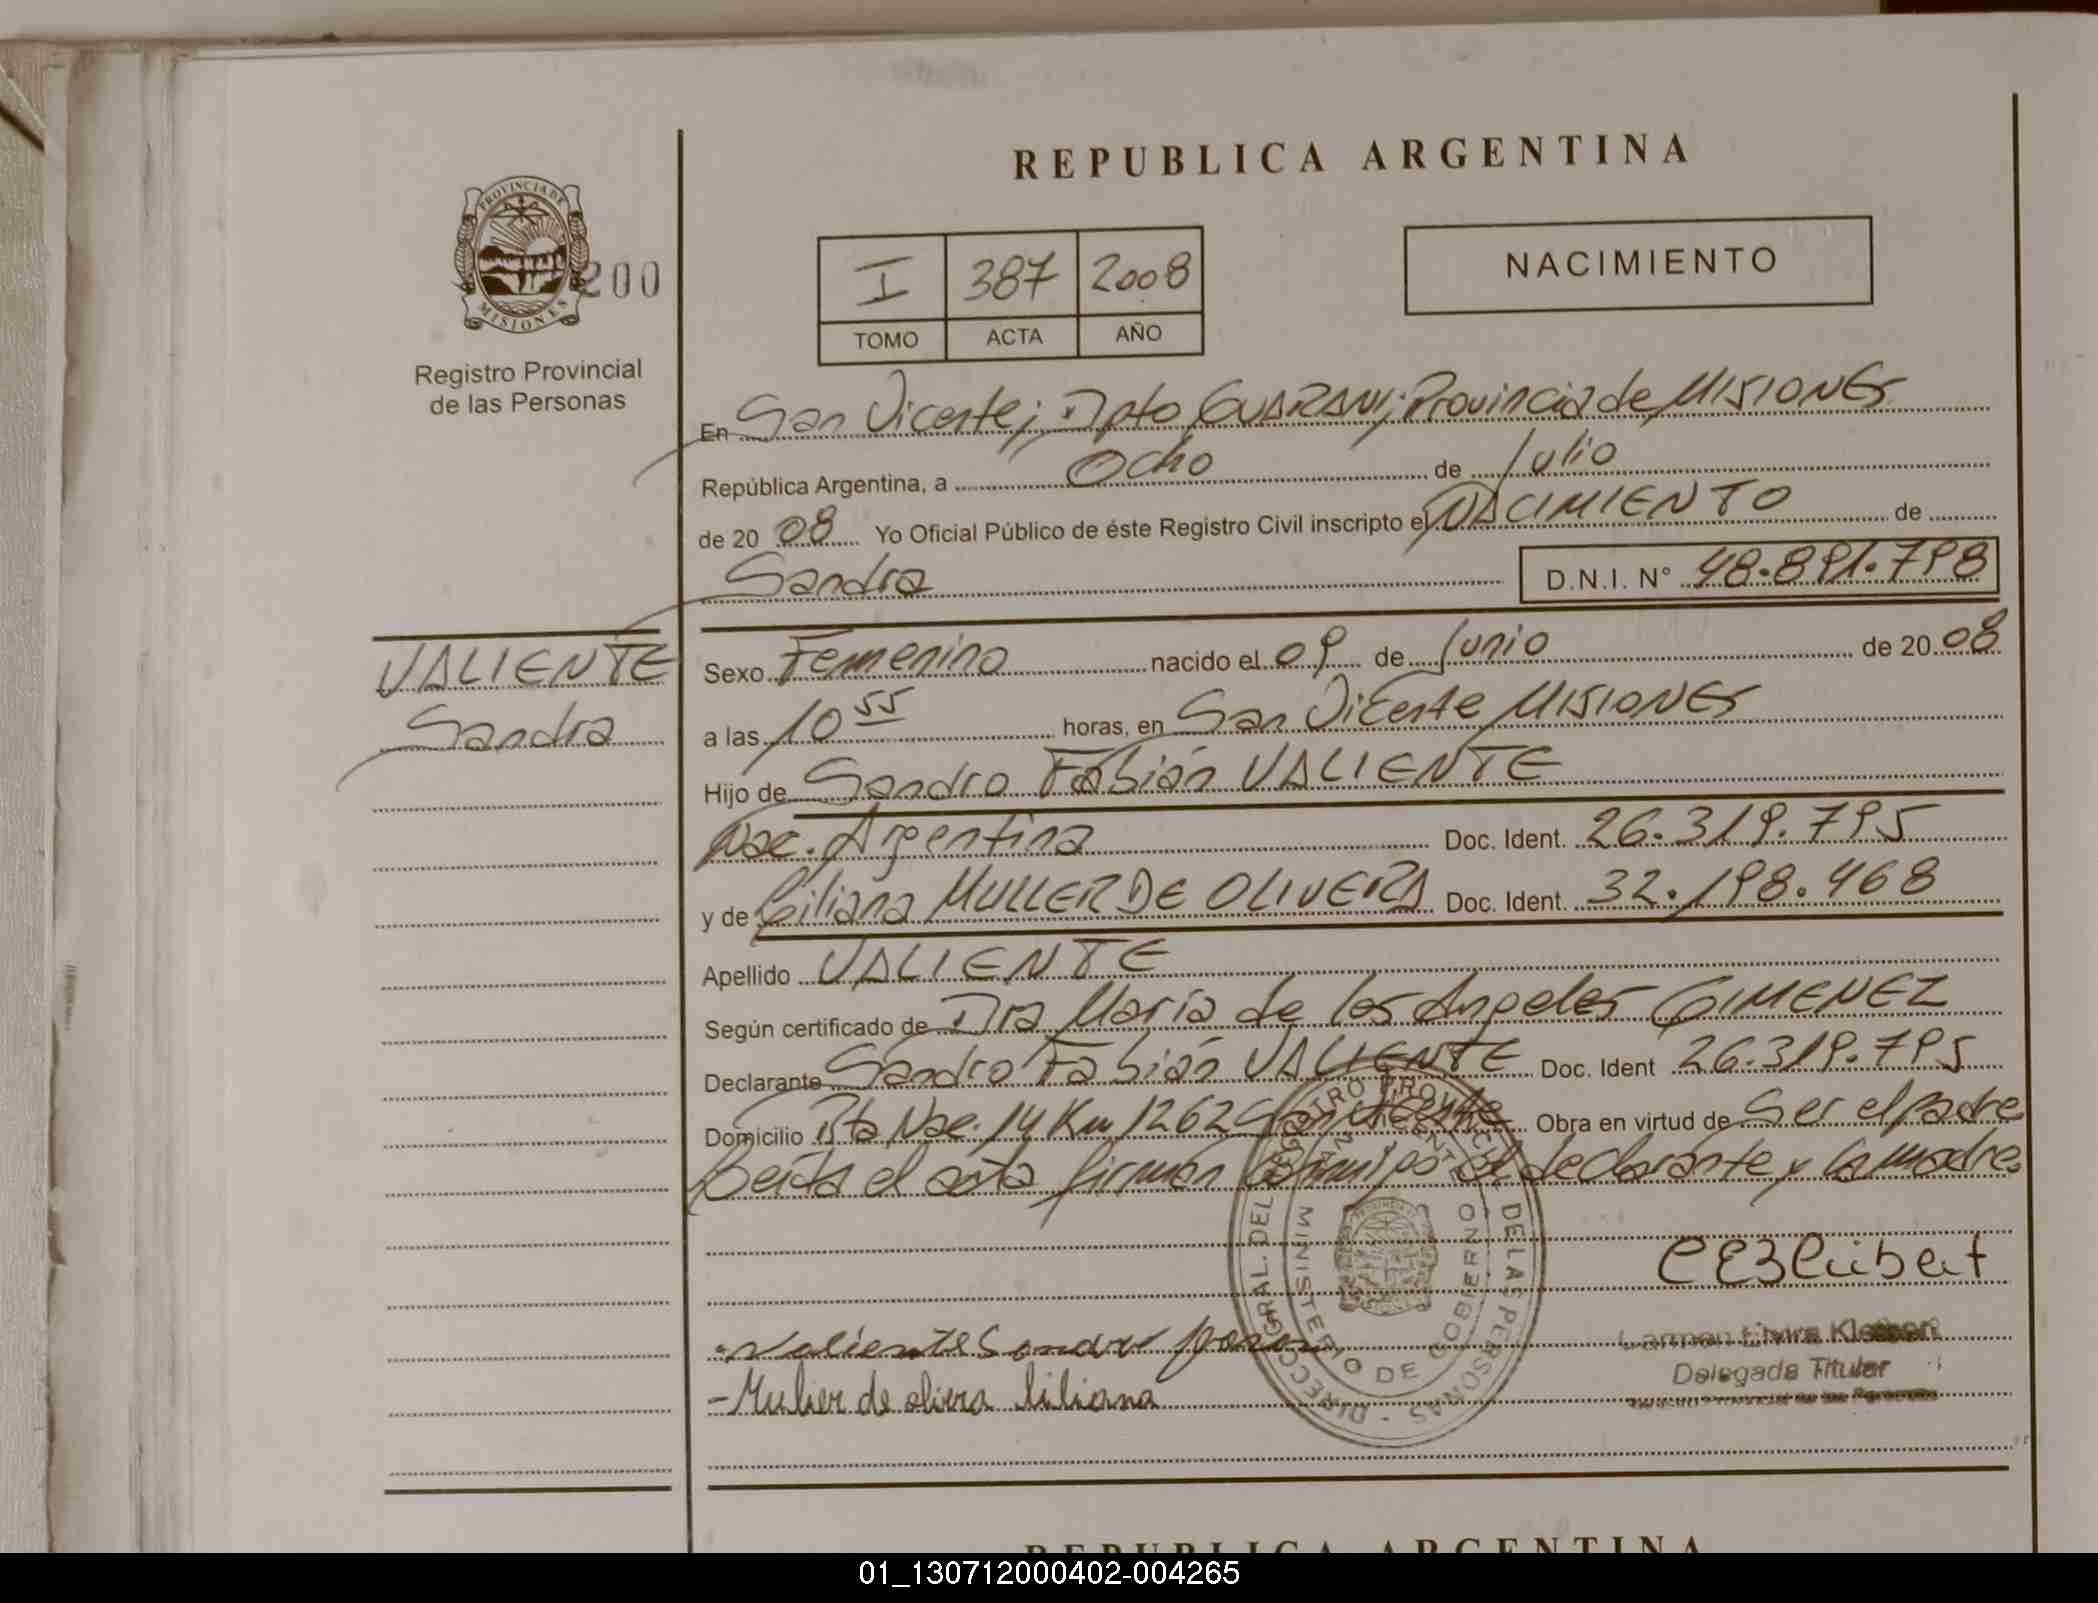 REPUBLICA ARGENTINA
PROVINCIA DE
MISIONES
200
Registro Provincial
de las Personas
I 387 2008
TOMO ACTA AÑO
NACIMIENTO
En San Vicente; Dpto GUARANI; Provincia de MISIONES
República Argentina, a Ocho de Julio
de 20 08 Yo Oficial Público de éste Registro Civil inscripto el NACIMIENTO de
Sandra D.N.I. N° 48.891.798
VALIENTE
Sandra
Sexo Femenino nacido el 09 de Junio de 20 08
a las 10 55 horas, en San Vicente MISIONES
Hijo de Sandro Fabián VALIENTE
Nac. Argentina Doc. Ident. 26.319.795
y de Liliana MULLER DE OLIVERA Doc. Ident. 32.198.468
Apellido VALIENTE
Según certificado de Dra María de los Angeles GIMENEZ
Declarante Sandro Fabián VALIENTE Doc. Ident 26.319.795
Domicilio Rta Nac. 14 Km 1262 San Vicente Obra en virtud de Ser el padre
Leída el acta firman conmigo el declarante y la madre
DIRECC. GRAL. DEL REGISTRO PROVINCIAL DE LAS PERSONAS
MINISTERIO DE GOBIERNO
Valiente Sandro
- Muller de olivera liliana
Carmen Elvira
Delegada Titular
Registro Provincial de las Personas
REPUBLICA ARGENTINA
01_130712000402-004265